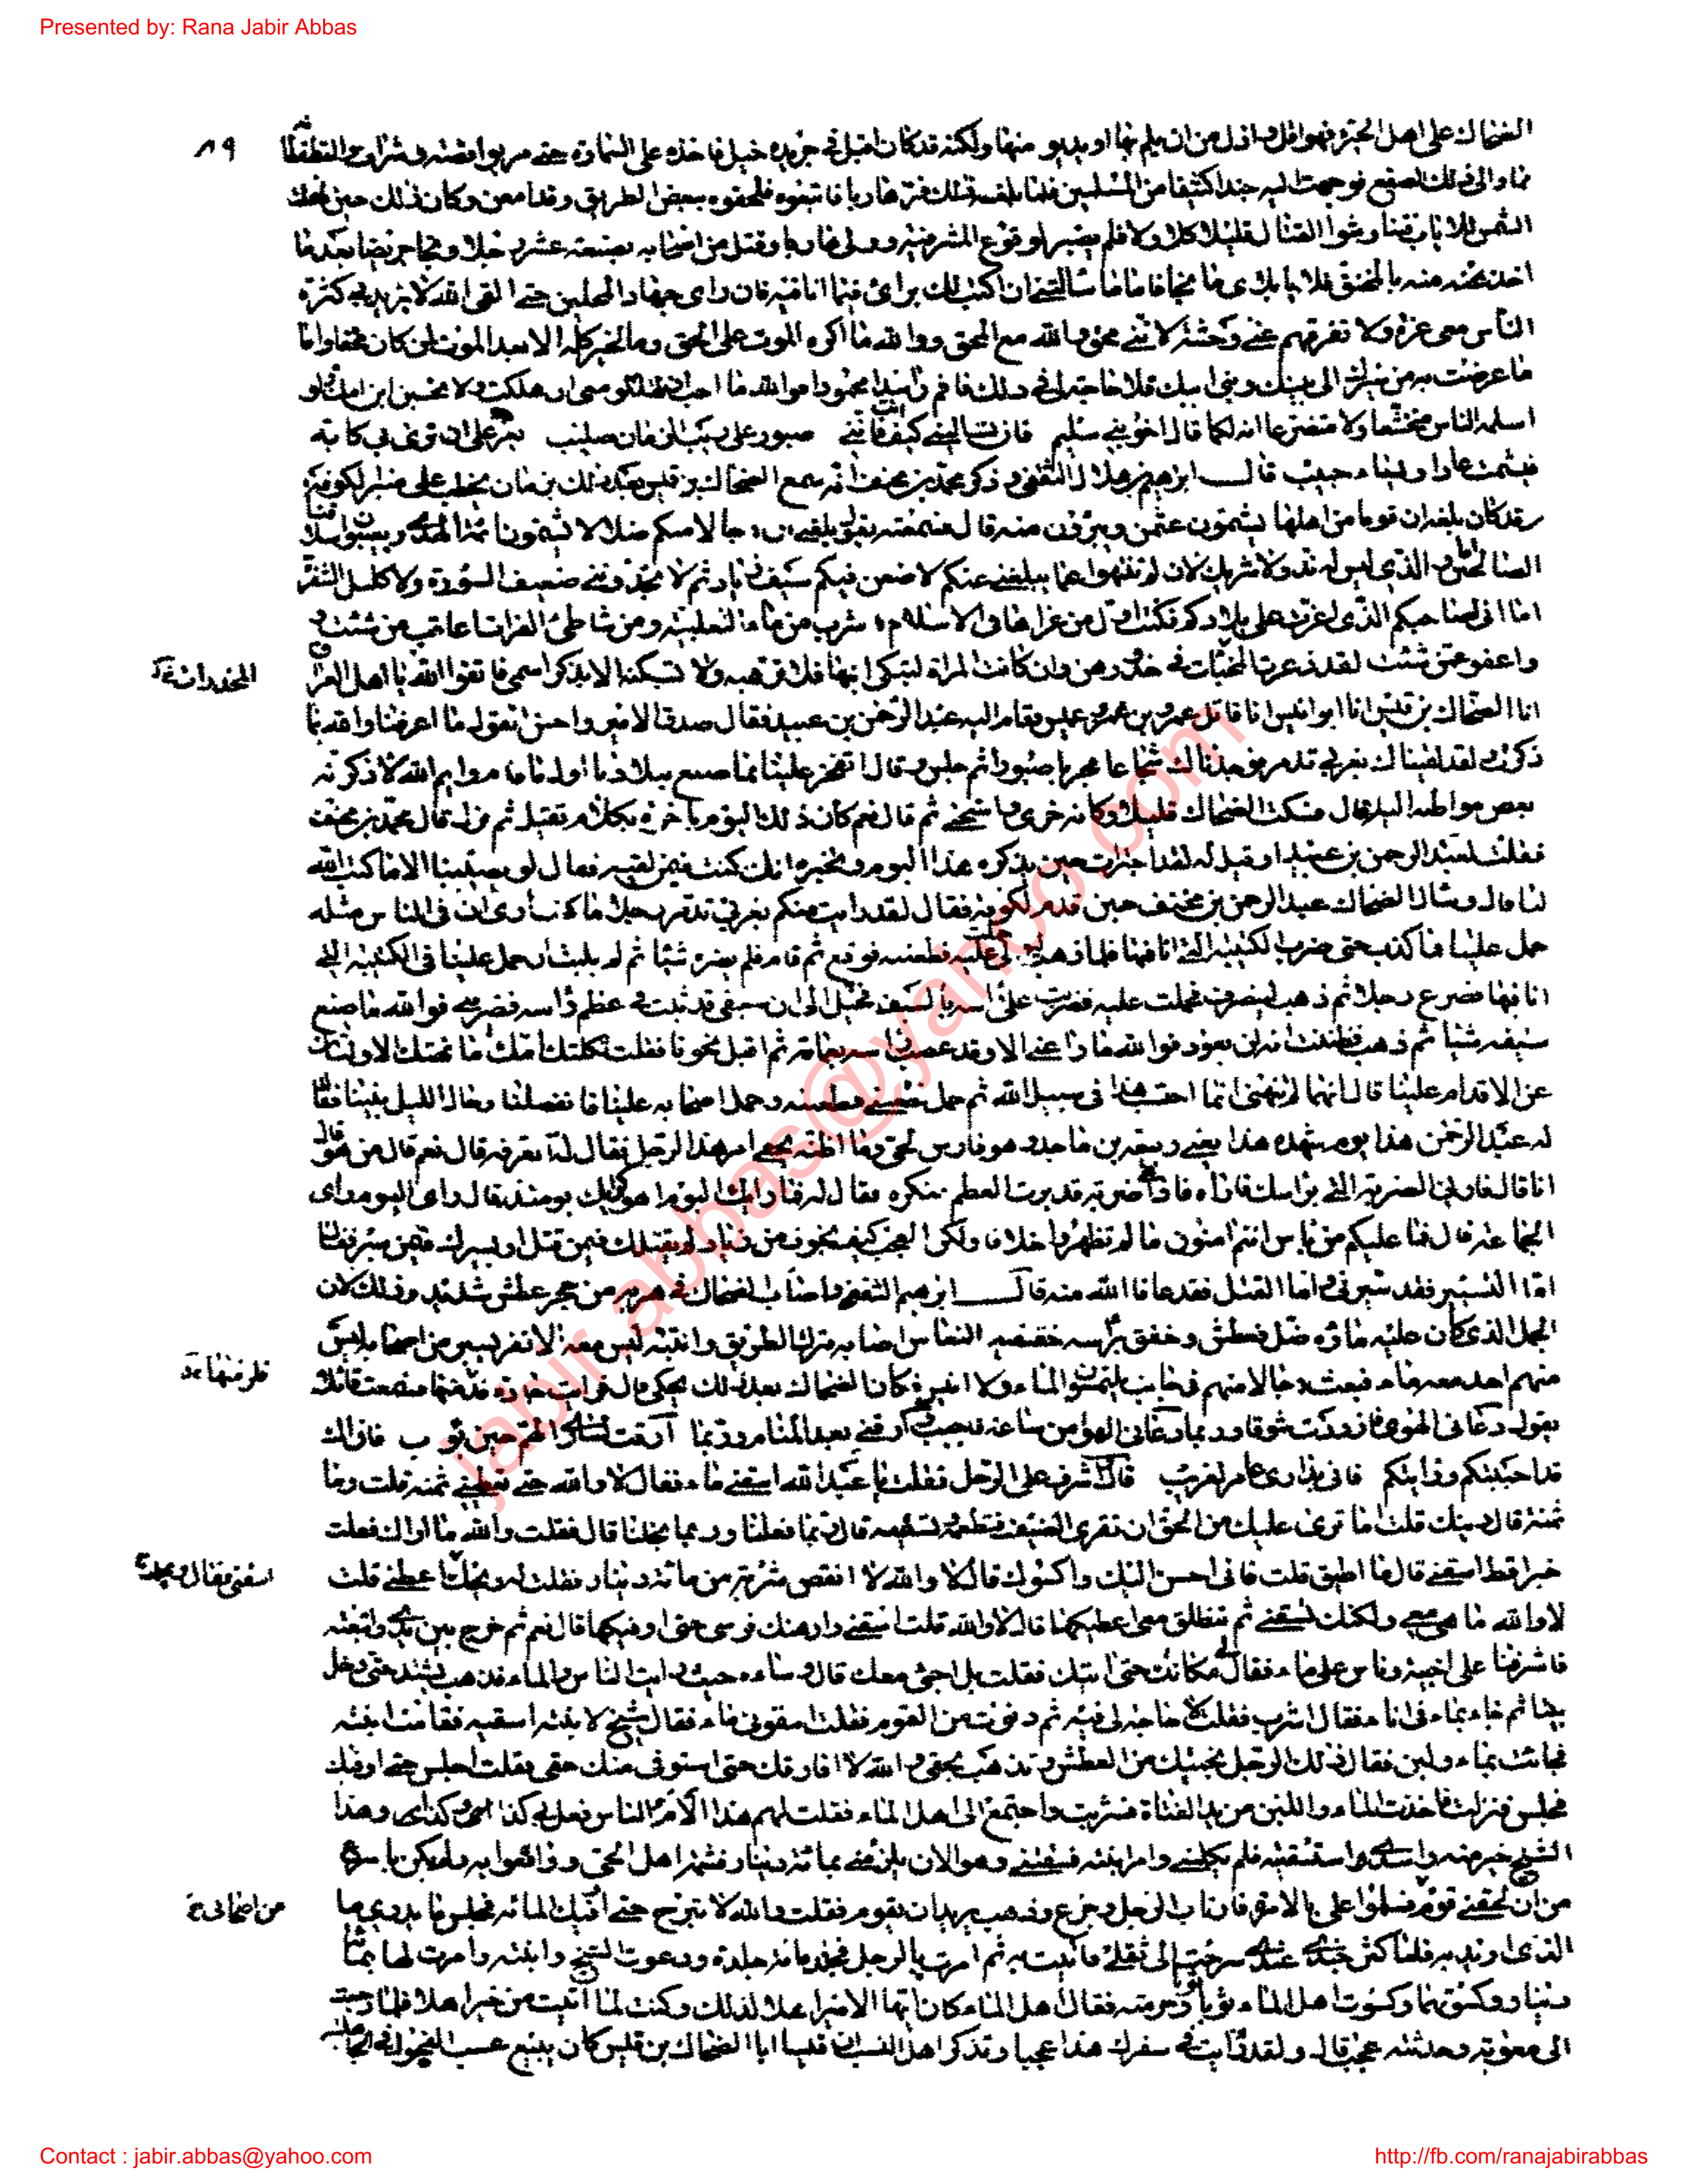 Presented by: Rana Jabir Abbas
٨٩
الضحاك على اهل الحيرة فهو اقل واذل من ان يلم بها او يدنو منها ولكنه قد كان اقبل في جريدة خيل فاخذ على السماوة حتى مر بواقصة وشراف والقطقطانة
فما والى ذلك الصقع فوجهت اليه جندا كثيفا من المسلمين فلما بلغه ذلك فر هاربا فاتبعوه فلحقوه ببعض الطريق وقد امعن وكان ذلك حين
الشمس للاياب فتناوشوا القتال قليلا كلا ولا فلم يصبر لوقوع المشرفية وولى هاربا وقتل من اصحابه بضعة عشر رجلا ونجا جريضا بعد ما
اخذ منه بالمخنق فلايا بلاى ما نجا فاما ما سالتنى ان اكتب لك برائى فيما انا فيه فان رايى جهاد المحلين حتى القى الله لا يزيدنى كثرة
الناس معى عزة ولا تفرقهم عنى وحشة لاننى محق والله مع المحق ووالله ما اكره الموت على الحق وما الخير كله الا بعد الموت لمن كان محقا واما
ما عرضت به من مسيرك الى ببنيك وبنى ابيك فلا حاجة لى فى ذلك فاقم راشدا محمودا فوالله ما احب ان تهلكوا معى ان هلكت ولا تحسبن ابن امك ولو
اسلمه الناس متخشعا ولا متضرعا انه لكما قال اخو بنى سليم فان تسالينى كيف انت فاننى صبور على ريب الزمان صليب يعز على ان ترى بى كابة
فيشمت عاد او يساء حبيب قال ابرهيم بن هلال الثقفى وذكر محمد بن مخنف انه سمع الضحاك بن قيس بعد ذلك بزمان يخطب على منبر الكوفة
وقد كان بلغه ان قوما من اهلها يشتمون عثمن ويبرؤن منه قال فسمعته يقول بلغنى ان رجالا منكم ضلالا يشتمون ائمة الهدى ويعيبون اسلافنا
الصالحين والذى ليس له ند ولا شريك لان لم تنتهوا عما يبلغنى عنكم لاضعن فيكم سيف زياد ثم لا تجدوننى ضعيف السورة ولا كليل الشفرة
اما انى لصاحبكم الذى اغرت على بلادكم فكنت اول من غزاها فى الاسلام وشرب من ماء الثعلبية ومن شاطئ الفرات اعاقب من شئت و
واعفو عمن شئت لقد ذعرت المخبات فى خدورهن وان كانت المراة ليبكى ابنها فلا ترهبه ولا تسكته الا بذكر اسمى فاتقوا الله يا اهل العراق
المخدرات
انا الضحاك بن قيس انا ابو انيس انا قاتل عمرو بن عميس فقام اليه عبد الرحمن بن عبيد فقال صدق الامير واحسن القول ما اعرفنا والله بما
ذكرت لقد لقيناك بغربى تدمر فوجدناك شجاعا مجربا صبورا ثم جلس وقال ايفخر علينا بما صنع ببلادنا اول ما قدم وايم الله لاذكرنه
بعض مواطنه اليه قال فسكت الضحاك قليلا وكانه خزى واستحى ثم قال نعم كان ذلك اليوم باخرة بكلام ثقيل ثم نزل قال محمد بن مخنف
فقلت لعبد الرحمن بن عبيد او قيل له لقد اجترات حين تذكره هذا اليوم وتخبره انك كنت فيمن لقيه فقال لن يصيبنا الا ما كتب الله
لنا قال وسال الضحاك عبد الرحمن بن مخنف حين قدم الكوفة فقال لقد رايت منكم بغربى تدمر رجلا ما كنت ارى ان فى الناس مثله
حمل علينا فما كذب حتى ضرب الكتيبة التى انا فيها فلما ذهب ليولى حملت عليه فطعنته فوقع ثم قام فلم يضره شيئا ثم لم يلبث ان حمل علينا فى الكتيبة التى
انا فيها فصرع رجلا ثم ذهب لينصرف فحملت عليه فضربته على راسه بالسيف فخيل الى ان سيفى قد ثبت فى عظم راسه فضربنى فوالله ما صنع
سيفه شيئا ثم ذهب فظننت انه لن يعود فوالله ما راعنى الا وقد عصب راسه بعمامة ثم اقبل نحونا فقلت ثكلتك امك اما نهتك الاوليان
عن الاقدام علينا قال انهما لم تنهيانى انما احتسب هذا فى سبيل الله ثم حمل فطعننى وطعنته وحمل اصحابه علينا فانفصلنا وحال الليل بيننا فقال
له عبد الرحمن هذا يوم شهده هذا يعنى ربيعة بن ماجد وهو فارس الحى وما اظنه يخفى امر هذا الرجل فقال له اتعرفه قال نعم قال من هو قال
انا قال فارنى الضربة التى براسك فاراه فاذا هى ضربة قد برت العظم منكرة فقال له فما رايك اليوم اهو كرايك يومئذ قال رايى اليوم راى
الجماعة قال فما عليكم من باس انتم امنون ما لم تظهروا خلافا ولكن العجب كيف نجوت من زياد لم يقتلك فيمن قتل او يسيرك فيمن سير فقال
اما التسيير فقد سيرنى واما القتل فقد عافانا الله منه قال ابرهيم الثقفى واصاب الضحاك فى هربه من حجر عطش شديد وذلك لان
الجمل الذى كان عليه ماؤه ضل فعطش وخفق براسه خفقتين لنعاس اصابه فترك الطريق وانتبه وليس معه الا نفر يسير من اصحابه ليس
منهم احد معه ماء فبعث رجالا منهم فى جانب يلتمسون الماء ولا انيس فكان الضحاك بعد ذلك يحكى قال فرايت جادة فلزمتها فسمعت قائلا
فلزمتها
يقول دعانى الهوى فازددت شوقا وربما دعانى الهوى من ساعة فاجيب وارقنى بعد المنام وربما ارقت لسارى الهم حين يؤب فان اك
قد احببتكم ورايتكم فانى بدارى عامر لغريب قال فاشرف على الرجل فقلت يا عبد الله اسقنى ماء فقال لا والله حتى تعطينى ثمنه قلت وما
ثمنه قال دينك قلت اما ترى عليك من الحق ان تقرى الضيف فتطعمه وتسقيه قال ربما فعلنا وربما بخلنا قال فقلت والله ما اراك فعلت
خيرا قط اسقنى قال ما اطيق قلت فانى احسن اليك واكسوك قال لا والله لا انقص شربة من مائة دينار فقلت له ويحك اسقنى فقال ويحك اعطنى قلت
اسقنى فقال ويحك
لا والله ما هى معى ولكنك تسقنى ثم تنطلق معى اعطيكها قال لا والله قلت اسقنى وارهنك فرسى حتى اوفيكها قال نعم ثم خرج بين يدى واتبعته
فاشرفنا على اخبية وناس على ماء فقال لى مكانك حتى اتيك فقلت بل اجئ معك قال وساءه حيث رايت الناس والماء فذهب يشتد حتى دخل
بيتا ثم جاء بماء فى اناء فقال اشرب فقلت لا حاجة لى فيه ثم دنوت من القوم فقلت اسقونى ماء فقال شيخ لابنته اسقيه فقامت ابنته
فجاءت بماء ولبن فقال ذلك الرجل نجيتك من العطش وتذهب بحقى والله لا افارقك حتى استوفى منك حقى فقلت اجلس حتى اوفيك
فجلس فنزلت فاخذت الماء واللبن من يد الفتاة فشربت واجتمع الى اهل الماء فقلت لهم هذا الام الناس فعل بى كذا وكذا وهذا
الشيخ خير منه واسدى استسقيته فلم يكلمنى وامر ابنته فسقتنى وهو الان يلزمنى بمائة دينار فشتمه اهل الحى ووقعوا به ولم يكن باسرع
من ان لحقنى قوم فسلموا على بالامرة فارتاب الرجل وجزع وذهب يريد ان يقوم فقلت والله لا تبرح حتى اوفيك المائة فجلس ما يدرى ما
من اصحابى
الذى اريد به فلما كثر جندى عندى سرحت الى ثقلى فاتيت به ثم امرت بالرجل فجلد مائة جلدة ودعوت الشيخ وابنته وامرت لهما بمائة
دينار وكسوتهما وكسوت اهل الماء ثوبا ثوبا وحرمته فقال اهل الماء كان ايها الامير اهلا لذلك وكنت لما اتيت من خير اهلا فلما رجعت
الى معوية وحدثته عجب وقال لقد رايت فى سفرك هذا عجبا وتذكر اهل النسب ان قيسا ابا الضحاك بن قيس كان يبيع عسب الفحول فى الجاهلية
jabir.abbas@yahoo.com
Contact : jabir.abbas@yahoo.com
http://fb.com/ranajabirabbas